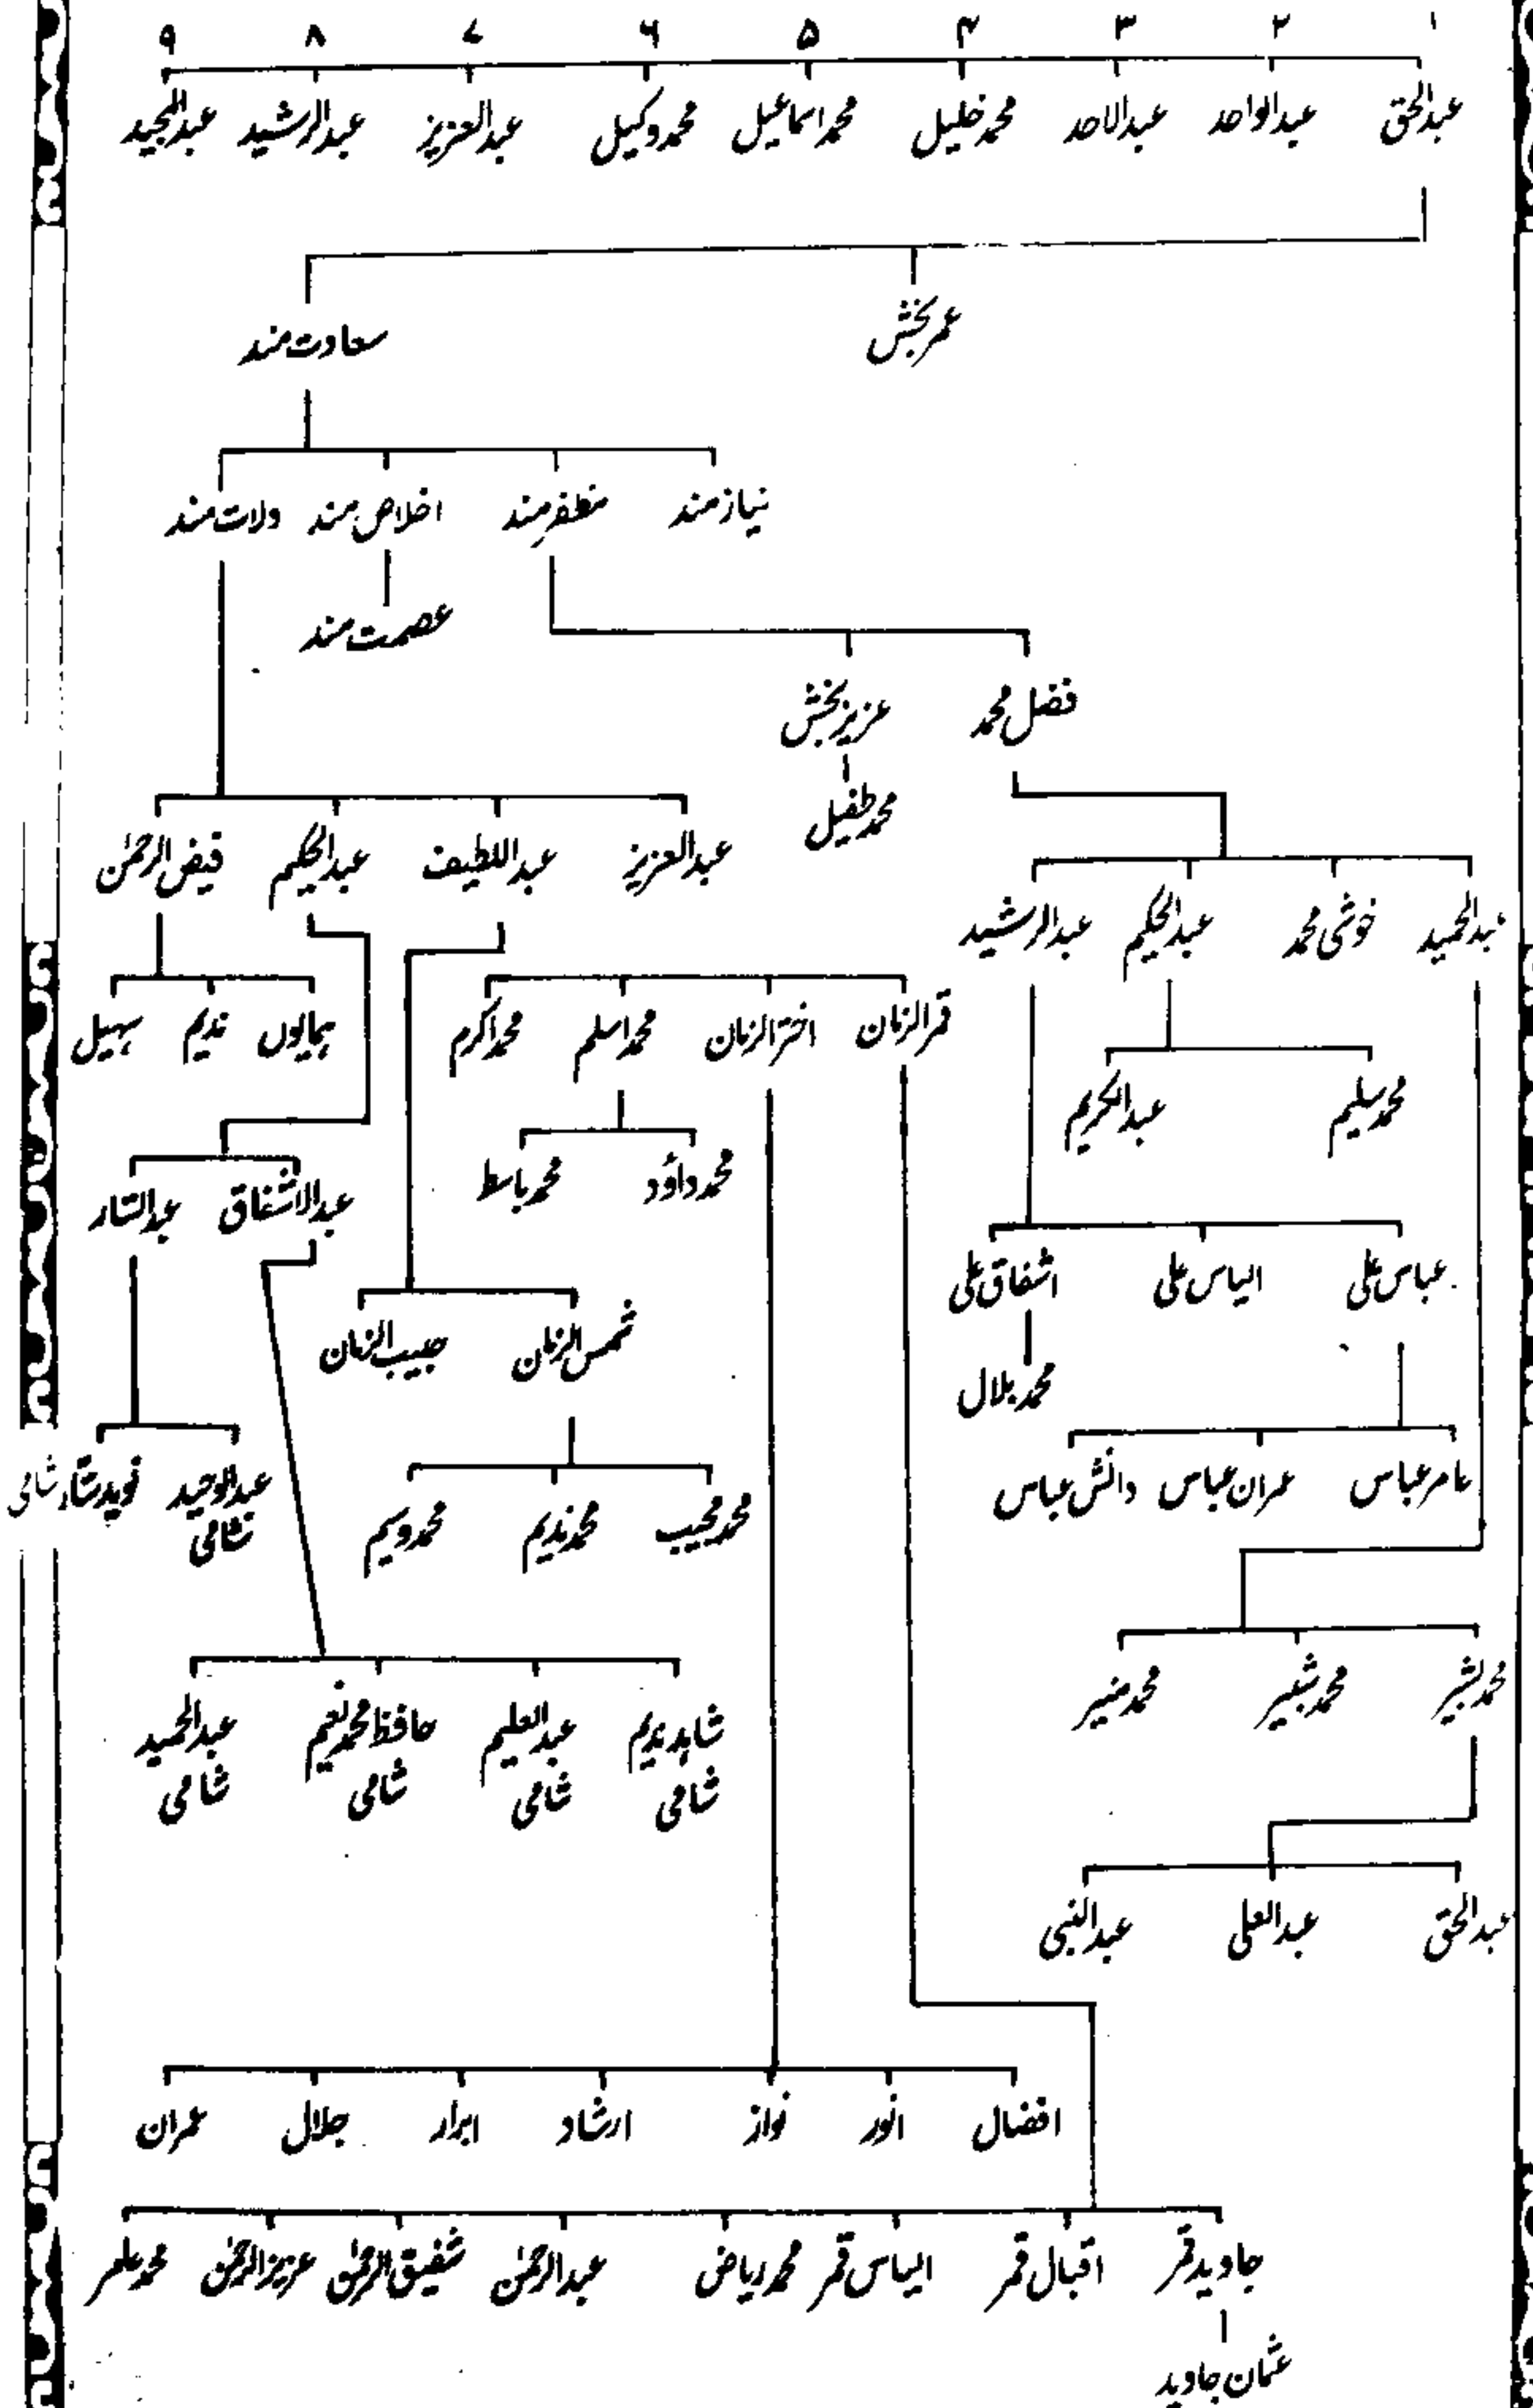 ۱ ۲ ۳ ۴ ۵ ۶ ۷ ۸ ۹
عبدالحق عبدالواحد عبدالاحد محمد خلیل محمد اسماعیل محمد وکیل عبدالعزیز عبدالرشید عبدالمجید
عمر بخش سعادت مند
نیاز مند مظفر مند اخلاص مند دلات مند
عصمت مند
فضل محمد عزیز بخش
محمد طفیل
عبدالعزیز عبداللطیف عبدالحکیم فیض الرحمٰن
عبدالحمید خوشی محمد عبدالحکیم عبدالرشید
قمر الزمان اختر الزمان محمد اسلم محمد اکرم ہمایوں ندیم سہیل
محمد سلیم عبدالکریم
محمد داؤد محمد باسط عبدالاشفاق عبدالستار
عباس علی الیاس علی اشفاق علی
شمس الزمان حبیب الزمان
محمد بلال
عامر عباس عمران عباس دانش عباس
عبدالوحید شامی نوید ستار شامی
محمد مجیب محمد ندیم محمد وسیم
محمد بشیر محمد شبیر محمد منیر
شاہد ندیم شامی عبدالعلیم شامی حافظ محمد نعیم شامی عبدالحمید شامی
عبدالحق عبدالعلی عبدالنبی
افضال انور نواز ارشاد ابرار جلال عمران
جاوید قمر اقبال قمر الیاس قمر محمد ریاض عبدالرحمٰن شفیق الرحمٰن عزیز الرحمٰن محمد عامر
عثمان جاوید